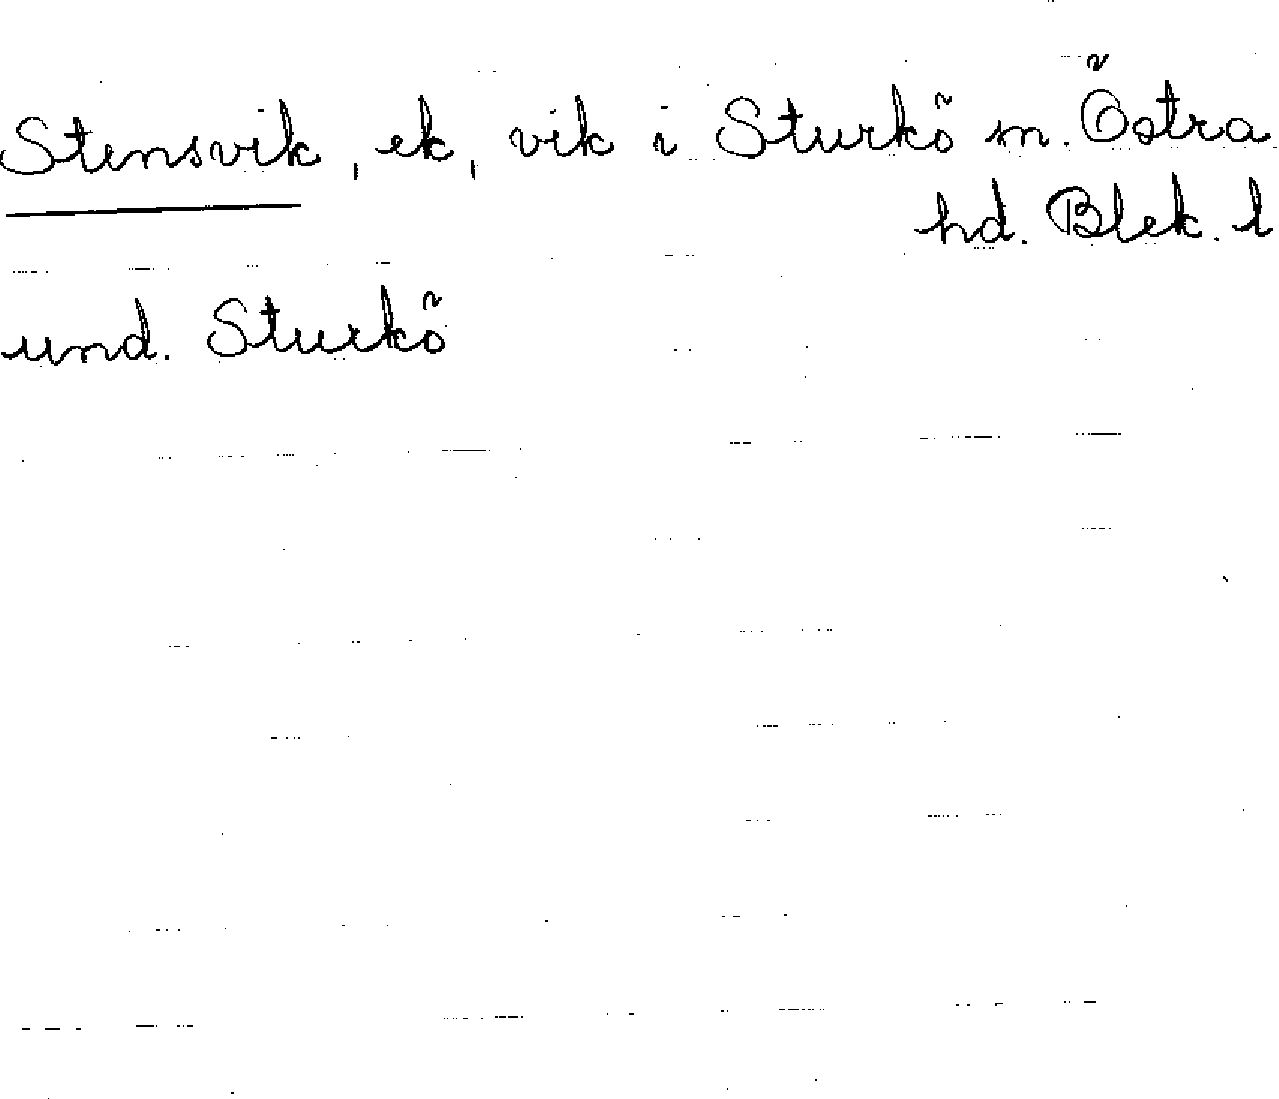 Stensvik, ek, vik i Sturkö sn. Östra
hd. Blek. l
und. Sturkö